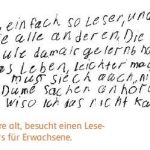 , einfach so Leser, und
e alle anderen. Die
ule damals gelernt ha
as Leben, Leichter mac
muss siech auch, ni
Dume sachen anhör
Wiso ich das nicht ka
re alt, besucht einen Lese-
rs für Erwachsene.